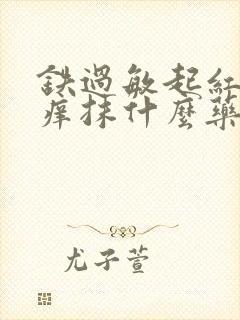 鉄過敏起紅
癢抹什麼藥
尤子萱